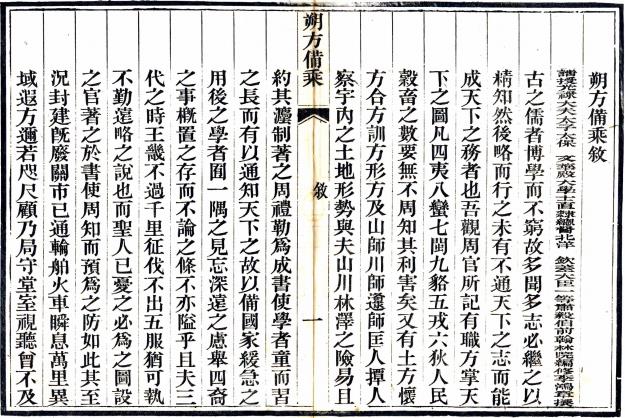 朔方備乘敘
誥授光祿大夫太子太保 文華殿大學士直隸總督北洋 欽差大臣一等肅毅伯前翰林院編修李鴻章撰
古之儒者博學而不窮故多聞多志必繼之以
精知然後略而行之未有不通天下之志而能
成天下之務者也吾觀周官所記有職方掌天
下之圖凡四夷八蠻七閩九貉五戎六狄人民
穀畜之數要無不周知其利害矣又有土方懷
方合方訓方形方及山師川師邍師匡人撢人
察宇內之土地形勢與夫山川林澤之險易且
朔方備乘 敘 一
約其灋制著之周禮勒爲成書使學者童而習
之長而有以通知天下之故以備國家緩急之
用後之學者囿一隅之見忘深遠之慮舉四裔
之事概置之存而不論之條不亦隘乎且夫三
代之時王畿不過千里征伐不出五服猶可執
不勤遠略之說也而聖人已憂之必爲之圖設
之官著之於書使周知而預爲之防如此其至
況封建旣廢關市已通輪船火車瞬息萬里異
域遐方邇若咫尺顧乃局守堂室視聽曾不及